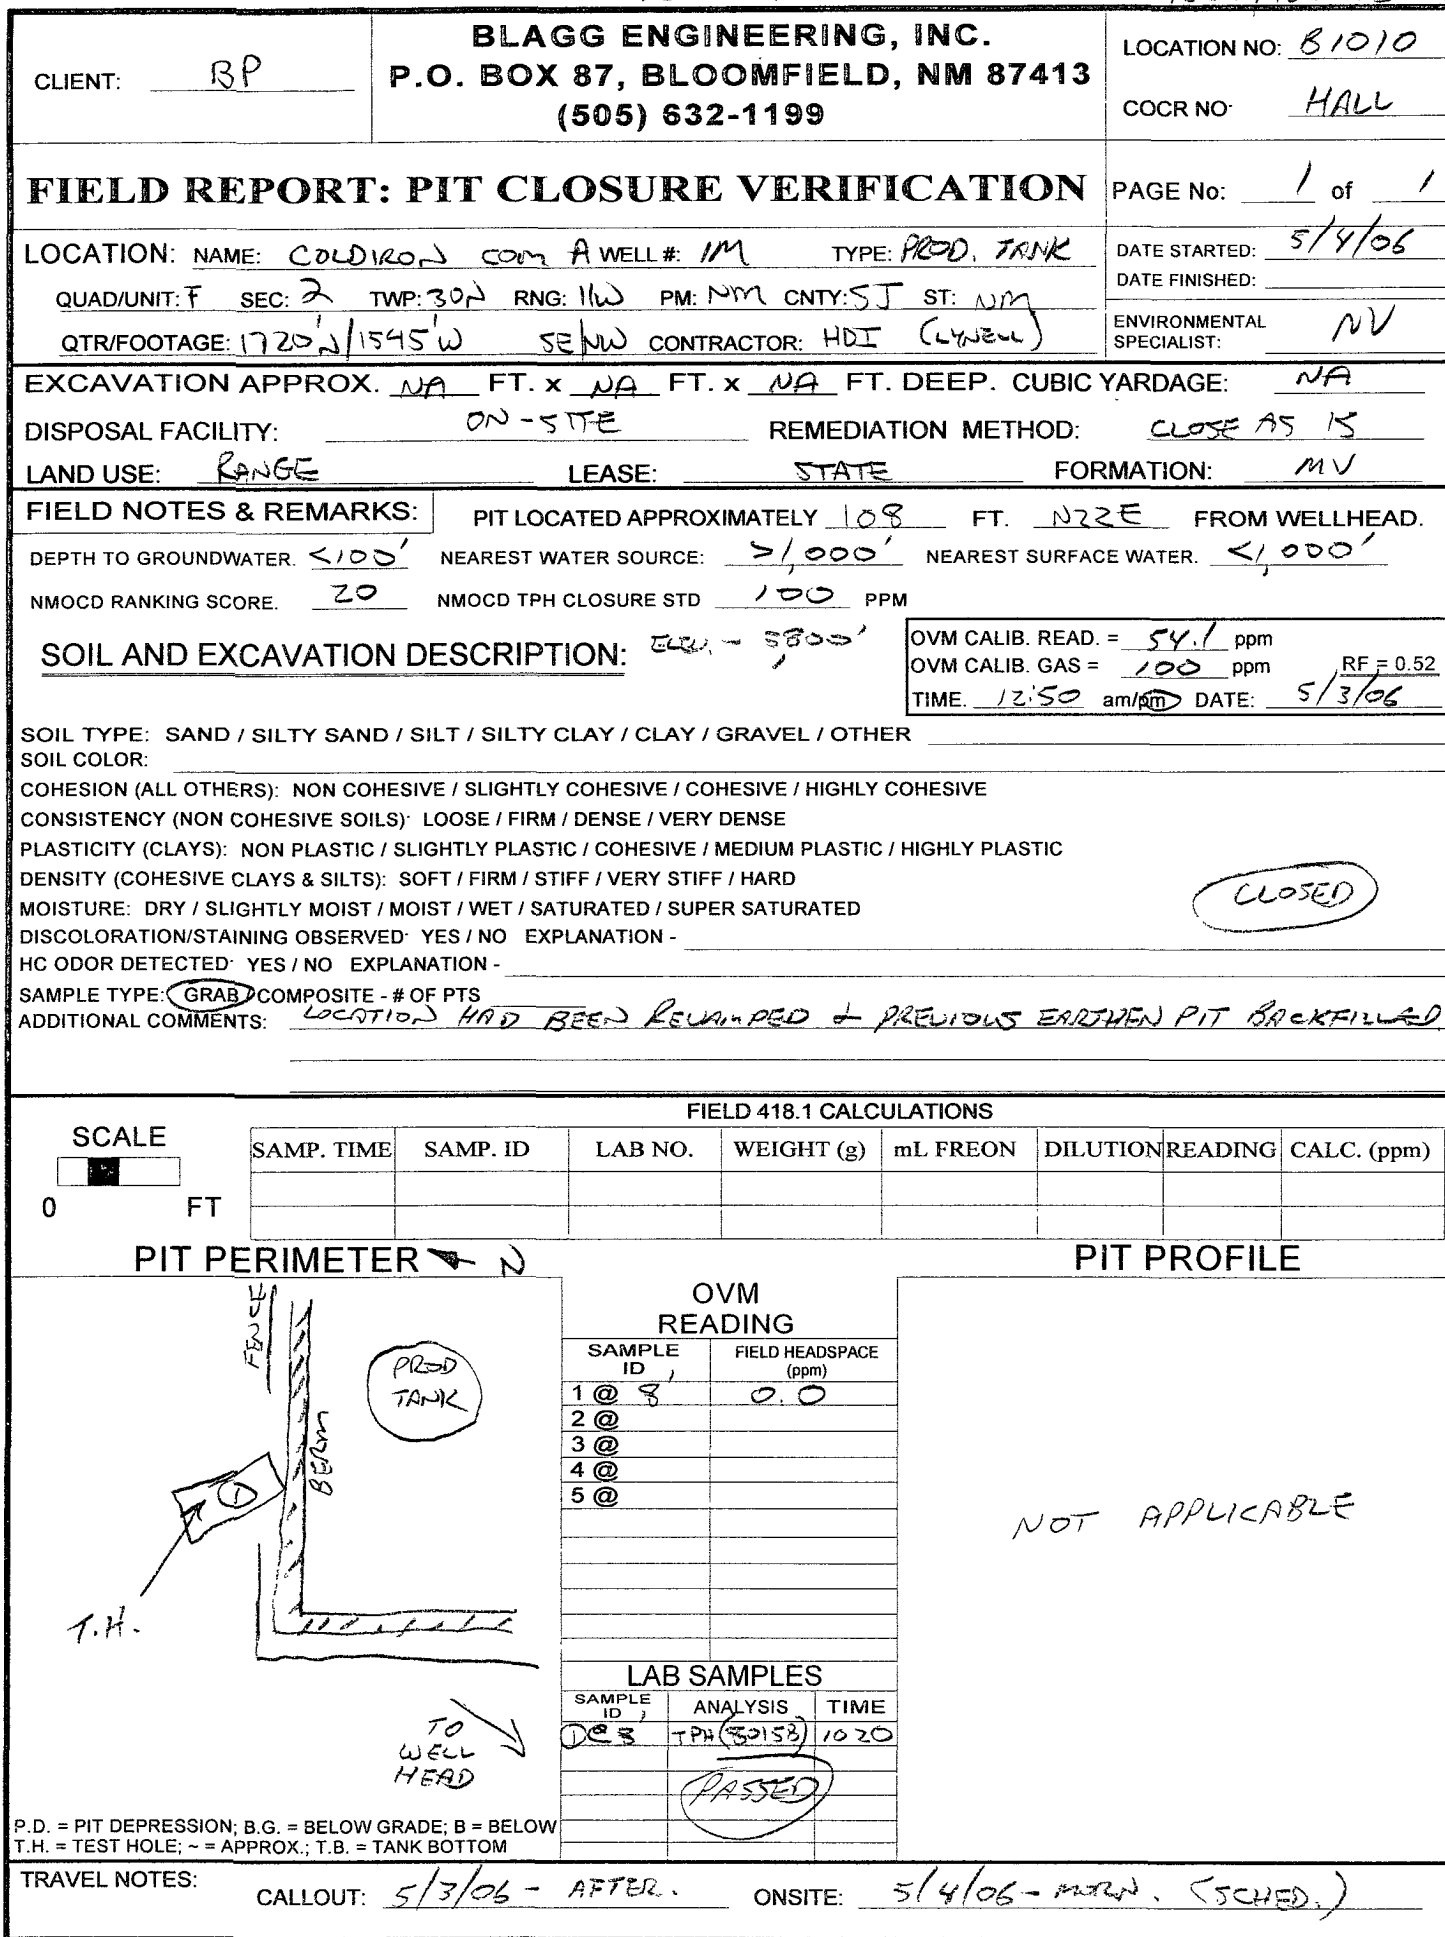 BLAGG ENGINEERING, INC.
P.O. BOX 87, BLOOMFIELD, NM 87413
(505) 632-1199
CLIENT: BP
LOCATION NO: B1010
COCR NO: HALL
FIELD REPORT: PIT CLOSURE VERIFICATION
PAGE No: 1 of 1
LOCATION: NAME: COLDIRON COM A WELL #: 1M TYPE: PROD. TANK
QUAD/UNIT: F SEC: 2 TWP: 30N RNG: 11W PM: NM CNTY: SJ ST: NM
QTR/FOOTAGE: 1720'N/1545'W SE/NW CONTRACTOR: HDI (LYNELL)
DATE STARTED: 5/4/06
DATE FINISHED:
ENVIRONMENTAL SPECIALIST: NV
EXCAVATION APPROX. NA FT. x NA FT. x NA FT. DEEP. CUBIC YARDAGE: NA
DISPOSAL FACILITY: ON-SITE REMEDIATION METHOD: CLOSE AS IS
LAND USE: RANGE LEASE: STATE FORMATION: MV
FIELD NOTES & REMARKS: PIT LOCATED APPROXIMATELY 108 FT. N22E FROM WELLHEAD.
DEPTH TO GROUNDWATER. <100' NEAREST WATER SOURCE: >1,000' NEAREST SURFACE WATER. <1,000'
NMOCD RANKING SCORE. 20 NMOCD TPH CLOSURE STD 100 PPM
SOIL AND EXCAVATION DESCRIPTION: ELEV. - 5,800'
OVM CALIB. READ. = 54.1 ppm
OVM CALIB. GAS = 100 ppm RF = 0.52
TIME. 12:50 am/pm DATE: 5/3/06
SOIL TYPE: SAND / SILTY SAND / SILT / SILTY CLAY / CLAY / GRAVEL / OTHER
SOIL COLOR:
COHESION (ALL OTHERS): NON COHESIVE / SLIGHTLY COHESIVE / COHESIVE / HIGHLY COHESIVE
CONSISTENCY (NON COHESIVE SOILS): LOOSE / FIRM / DENSE / VERY DENSE
PLASTICITY (CLAYS): NON PLASTIC / SLIGHTLY PLASTIC / COHESIVE / MEDIUM PLASTIC / HIGHLY PLASTIC
DENSITY (COHESIVE CLAYS & SILTS): SOFT / FIRM / STIFF / VERY STIFF / HARD
MOISTURE: DRY / SLIGHTLY MOIST / MOIST / WET / SATURATED / SUPER SATURATED
CLOSED
DISCOLORATION/STAINING OBSERVED: YES / NO EXPLANATION -
HC ODOR DETECTED: YES / NO EXPLANATION -
SAMPLE TYPE: GRAB / COMPOSITE - # OF PTS
ADDITIONAL COMMENTS: LOCATION HAD BEEN REVAMPED & PREVIOUS EARTHEN PIT BACKFILLED
FIELD 418.1 CALCULATIONS
SCALE
0 FT
SAMP. TIME SAMP. ID LAB NO. WEIGHT (g) mL FREON DILUTION READING CALC. (ppm)
PIT PERIMETER N
FENCE
PROD TANK
BERM
1
T.H.
TO WELL HEAD
OVM READING
SAMPLE ID FIELD HEADSPACE (ppm)
1 @ 8' 0.0
2 @
3 @
4 @
5 @
LAB SAMPLES
SAMPLE ID ANALYSIS TIME
1@8' TPH (8015B) 1020
PASSED
PIT PROFILE
NOT APPLICABLE
P.D. = PIT DEPRESSION; B.G. = BELOW GRADE; B = BELOW
T.H. = TEST HOLE; ~ = APPROX.; T.B. = TANK BOTTOM
TRAVEL NOTES: CALLOUT: 5/3/06 - AFTER. ONSITE: 5/4/06 - MORN. (SCHED.)